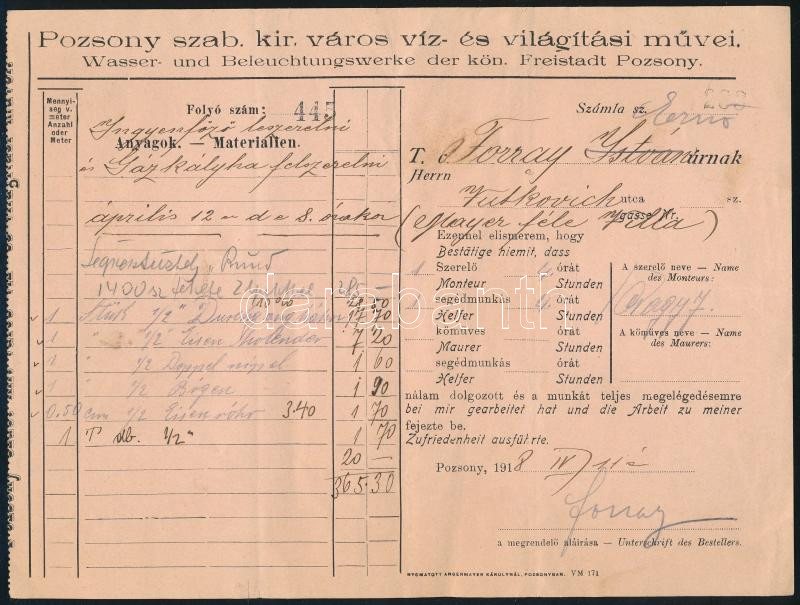 Pozsony szab. kir. város víz- és világítási művei.
Wasser- und Beleuchtungswerke der kön. Freistadt Pozsony.
Mennyi-
ség v.
meter
Anzahl
oder
Meter
Folyó szám: 445
Ingyenfőző leszerelni
Anyagok. — Materialien.
és Gázkályha felszerelni
április 12-én d. e. 8 órakor
1400
1 Stück 1/2" 17 70
1 " 1/2" Eisen 7 20
1 " 1/2 Doppel nippel 1 60
1 " 1/2 Bogen 1 90
0.50 cm 1/2 Eisenrohr 3.40 1 70
1 T db. 1/2" 1 70
20 —
365.30
Számla sz. 200
Ernő
T. c. Forray István úrnak
Herrn
Vutkovich utca sz.
gasse Nr.
(Mayer féle Villa)
Ezennel elismerem, hogy
Bestätige hiemit, dass
1 Szerelő 4 órát
Monteur Stunden
1 segédmunkás 4 órát
Helfer Stunden
kőműves órát
Maurer Stunden
segédmunkás órát
Helfer Stunden
A szerelő neve — Name
des Monteurs:
A kőműves neve — Name
des Maurers:
nálam dolgozott és a munkát teljes megelégedésemre
bei mir gearbeitet hat und die Arbeit zu meiner
fejezte be.
Zufriedenheit ausführte.
Pozsony, 1918 IV/11-é
Forray
a megrendelő aláírása — Unterschrift des Bestellers.
NYOMATOTT ANGERMAYER KÁROLYNÁL, POZSONYBAN. VM 171
darabanth